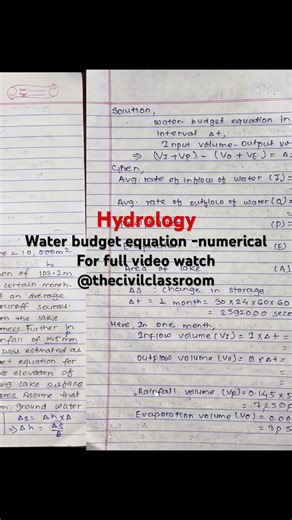 Solution,
water budget equation in
interval Δt,
Input volume - output vo
⇒ (VI + Vp) - (Vo + VE) = Δ
Given,
Avg. rate of inflow of water (I) =
Avg. rate of outflow of water (Q) =
Hydrology
Water budget equation -numerical
For full video watch
@thecivilclassroom
(P) =
(E)
Area of lake (A)
ΔS : change in storage.
Δt = 1 month = 30×24×60×60
= 2592000 seco
Here, In one month,
Inflow volume (VI) = I×Δt =
Outflow volume (Vo) = Q×Δt =
Rainfall volume (Vp) = 0.145×5
= 7250
Evaporation volume (VE) = 0.0
= 305
= 10,000m²
on of 103.2m
certain month.
d an average
runoff sources
om the lake
Further in
fall of 145mm
was estimated as
et equation for
elevation of
lake surface
Assume that
ground water
ΔS = Δh×A
⇒ Δh = ΔS/A